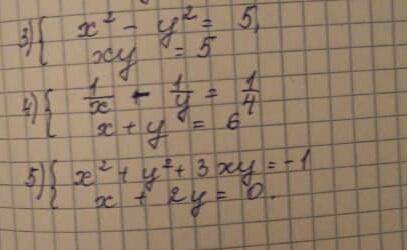 3) { x² - y² = 5,
xy = 5
4) { 1/x - 1/y = 1/4
x + y = 6
5) { x² + y² + 3xy = -1
x + 2y = 0.